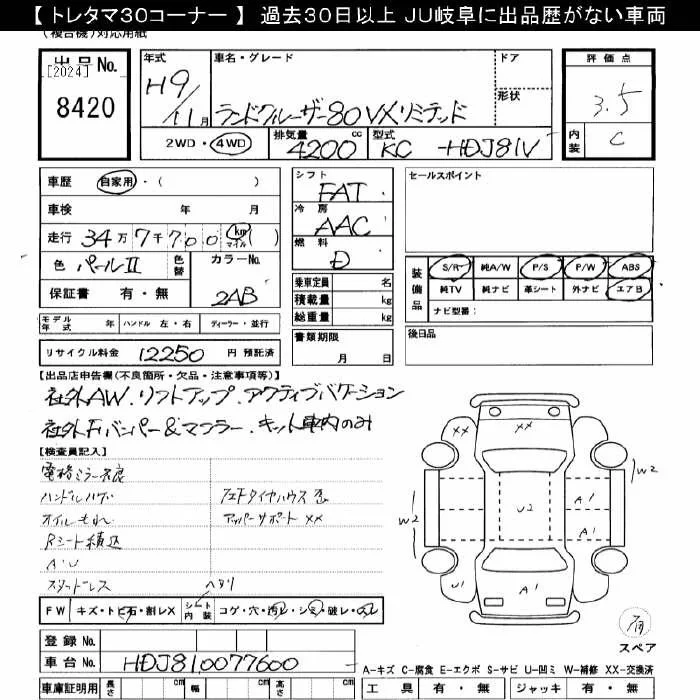 【 トレタマ30コーナー 】 過去30日以上 JU岐阜に出品歴がない車両
(複合機)対応用紙
出品No.
[2024]
8420
年式
H9/11月
車名・グレード
ランドクルーザー80VXリミテッド
ドア
形状
2WD・4WD
排気量 4200 cc
型式 KC-HDJ81V
評価点
3.5
内装 C
車歴 自家用・( )
車検 年 月
走行 34万7千700 km マイル ( )
色 パールII 色替
カラーNo. 2AB
保証書 有・無
モデル年式 年 ハンドル 左・右 ディーラー・並行
リサイクル料金 12250 円 預託済
シフト FAT
冷房 AAC
燃料 D
乗車定員 名
積載量 kg
総重量 kg
書類期限 月 日
セールスポイント
装備品 S/R 純A/W P/S P/W ABS
純TV 純ナビ 革シート 外ナビ エアB
ナビ型番:
後日品
【出品店申告欄(不良箇所・欠品・注意事項等)】
社外AW.リフトアップ.アクティブバケーション
社外Fバンパー&マフラー.キット車内のみ
【検査員記入】
電格ミラー不良
オイルもれ
Rシート積込
A'U
スタッドレス
アッパーサポート XX
ヘタリ
FW キズ・トビ石・割レX シート内装 コゲ・穴・汚レ・シミ・破レ・スレ
登録No.
車台No. HDJ810077600
車庫証明用 長さ cm 幅 cm 高さ cm
XX
XX
W2
W2
U2
A1
A1
U1
A1
スペア
A−キズ C−腐食 E−エクボ S−サビ U−凹ミ W−補修 XX−交換済
工具 有・無 ジャッキ 有・無